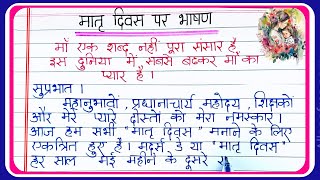 मातृ दिवस पर भाषण
माँ एक शब्द नहीं पूरा संसार है
इस दुनिया में सबसे बढ़कर माँ का
प्यार है।
सुप्रभात।
महानुभावों, प्रधानाचार्य महोदय, शिक्षकों
और मेरे प्यारे दोस्तों को मेरा नमस्कार।
आज हम सभी "मातृ दिवस" मनाने के लिए
एकत्रित हुए हैं। मदर्स डे या "मातृ दिवस"
हर साल मई महीने के दूसरे